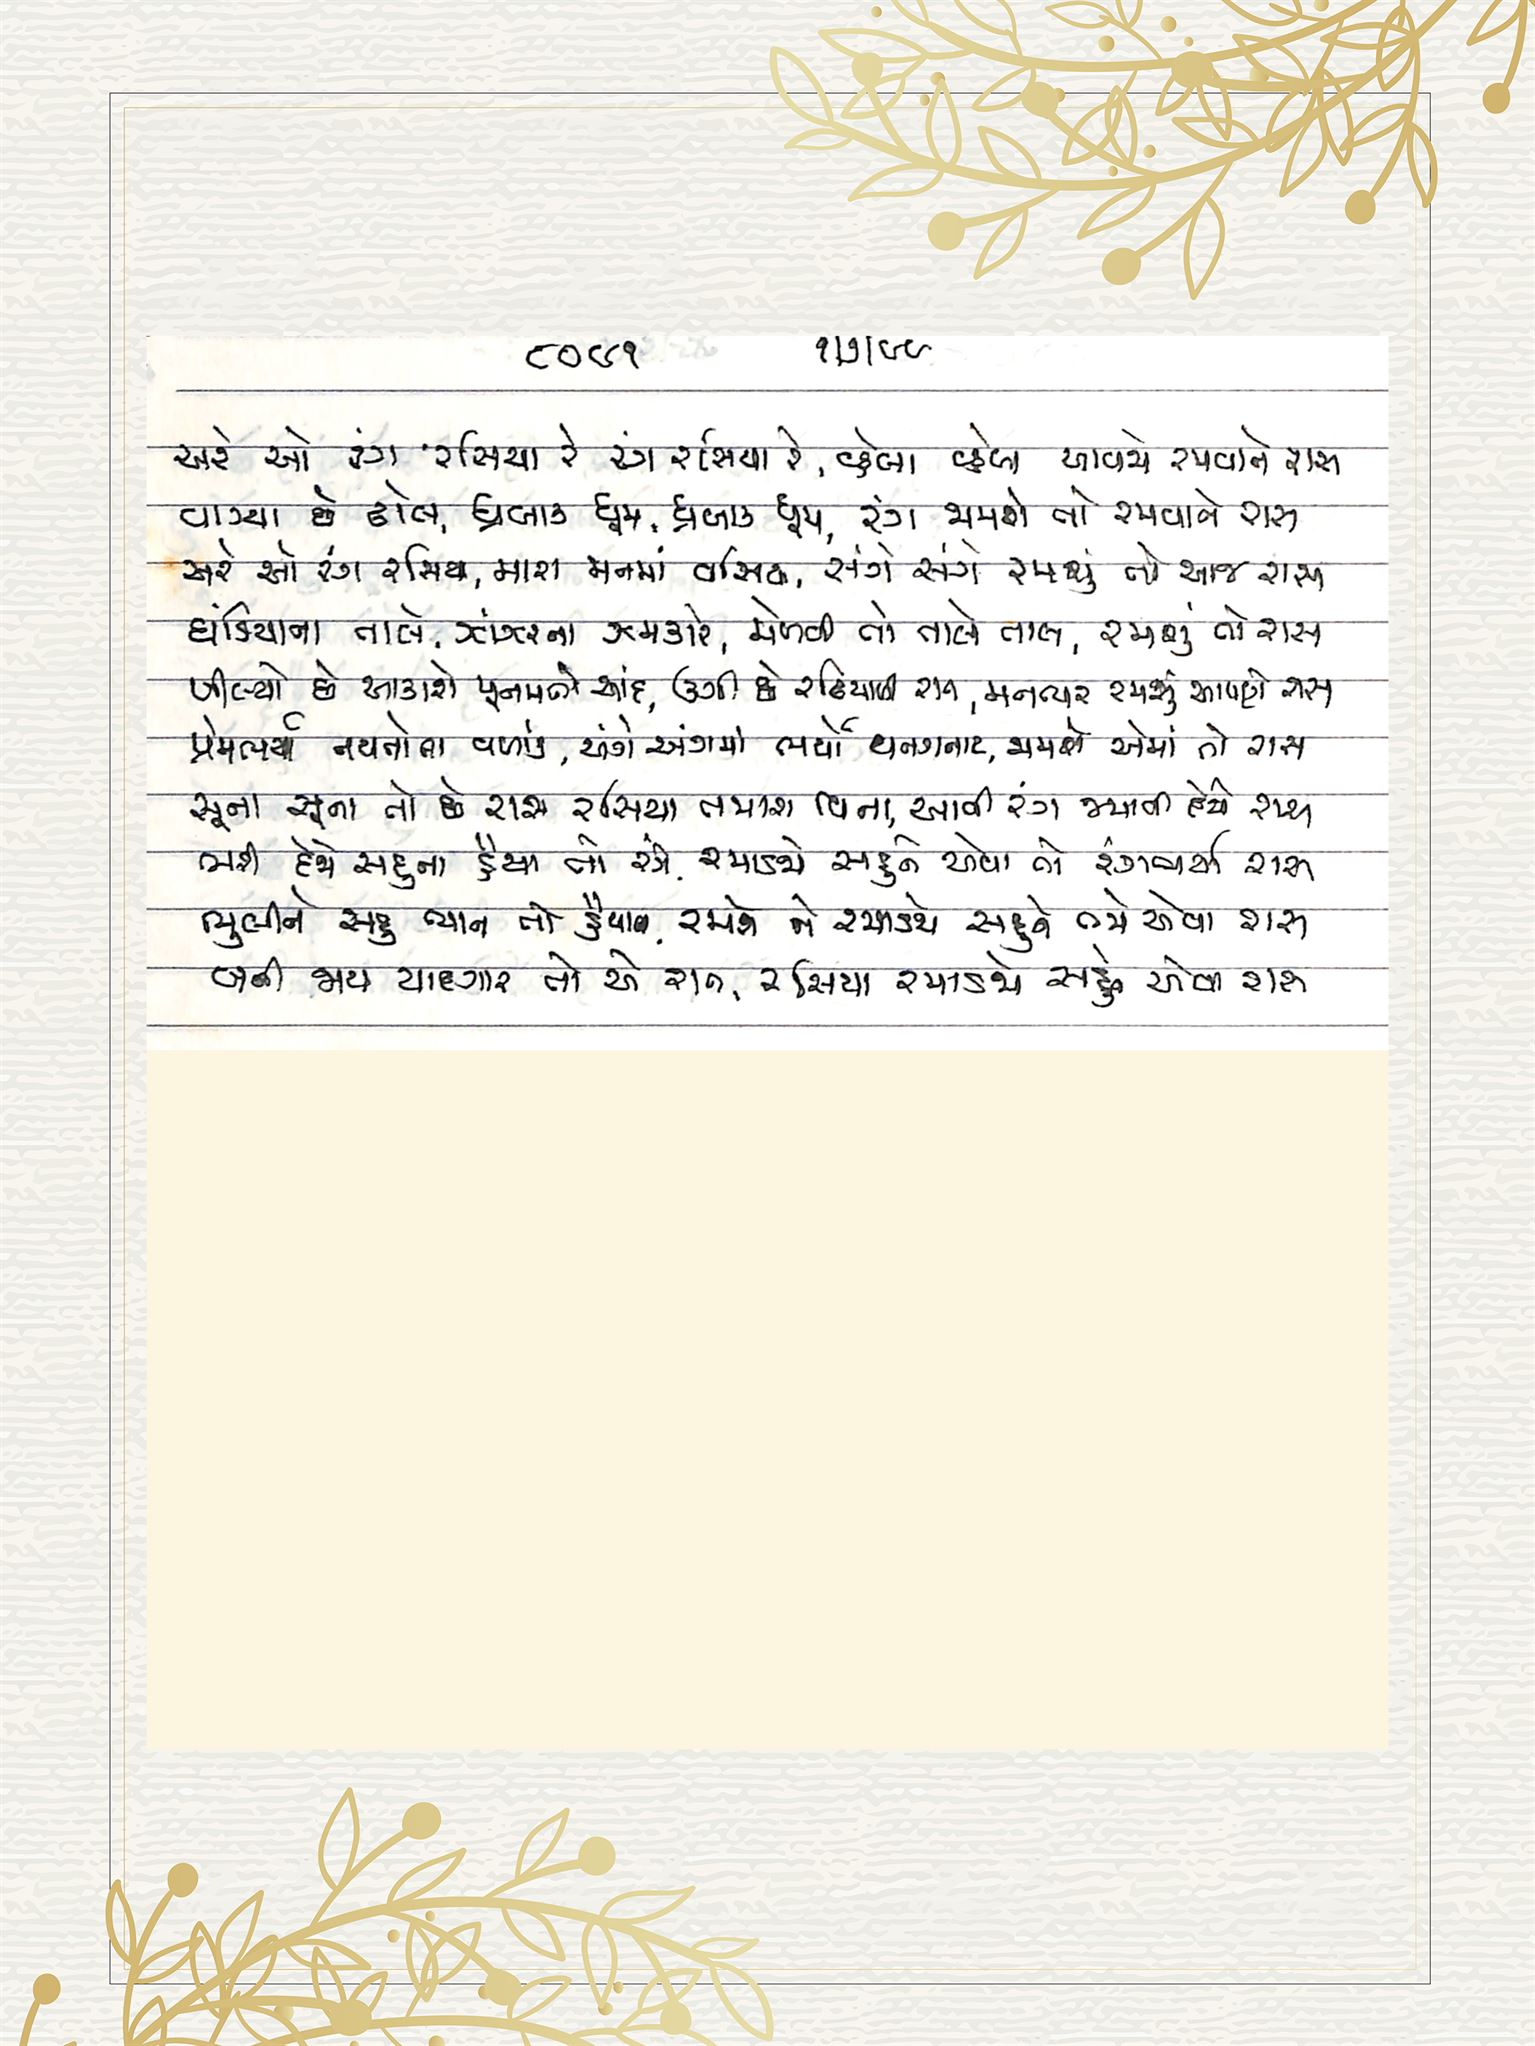 ૮૦૯૧ ૧/૭/૯૯
અરે ઓ રંગ રસિયા રે રંગ રસિયા રે, છેલા છેલા આવજે રમવાને રાસ
વાગ્યા છે ઢોલ, ધ્રબાક ધ્રૂમ, ધ્રબાક ધ્રૂમ, રંગ જામશે તો રમવાને રાસ
અરે ઓ રંગ રસિયા, મારા મનમાં વસિયા, સંગે સંગે રમશું તો આજ રાસ
દાંડિયાના તાલે, ઝાંઝરના ઝમકારે, મેળવી તો તાલે તાલ, રમશું તો રાસ
ખીલ્યો છે આકાશે પૂનમનો ચાંદ, ઉગી છે રઢિયાળી રાત, મનભર રમશું આપણે રાસ
પ્રેમભર્યા નયનોના વળાંકે, અંગે અંગમાં ભર્યો થનગનાટ, જામશે એમાં તો રાસ
સૂના સૂના તો છે રાસ રસિયા તમારા વિના, આવી રંગ જમાવી દેજે રાસ
ભરી દેજે સહુના હૈયા તો રંગે, રમાડજે સહુને એવા તો રંગભર્યા રાસ
ભુલીને સહુ ભાન તો હૈયાના, રમજે ને રમાડજે સહુને તમે એવા રાસ
બની જાય યાદગાર તો એ રાત, રસિયા રમાડજે સહુને એવા રાસ